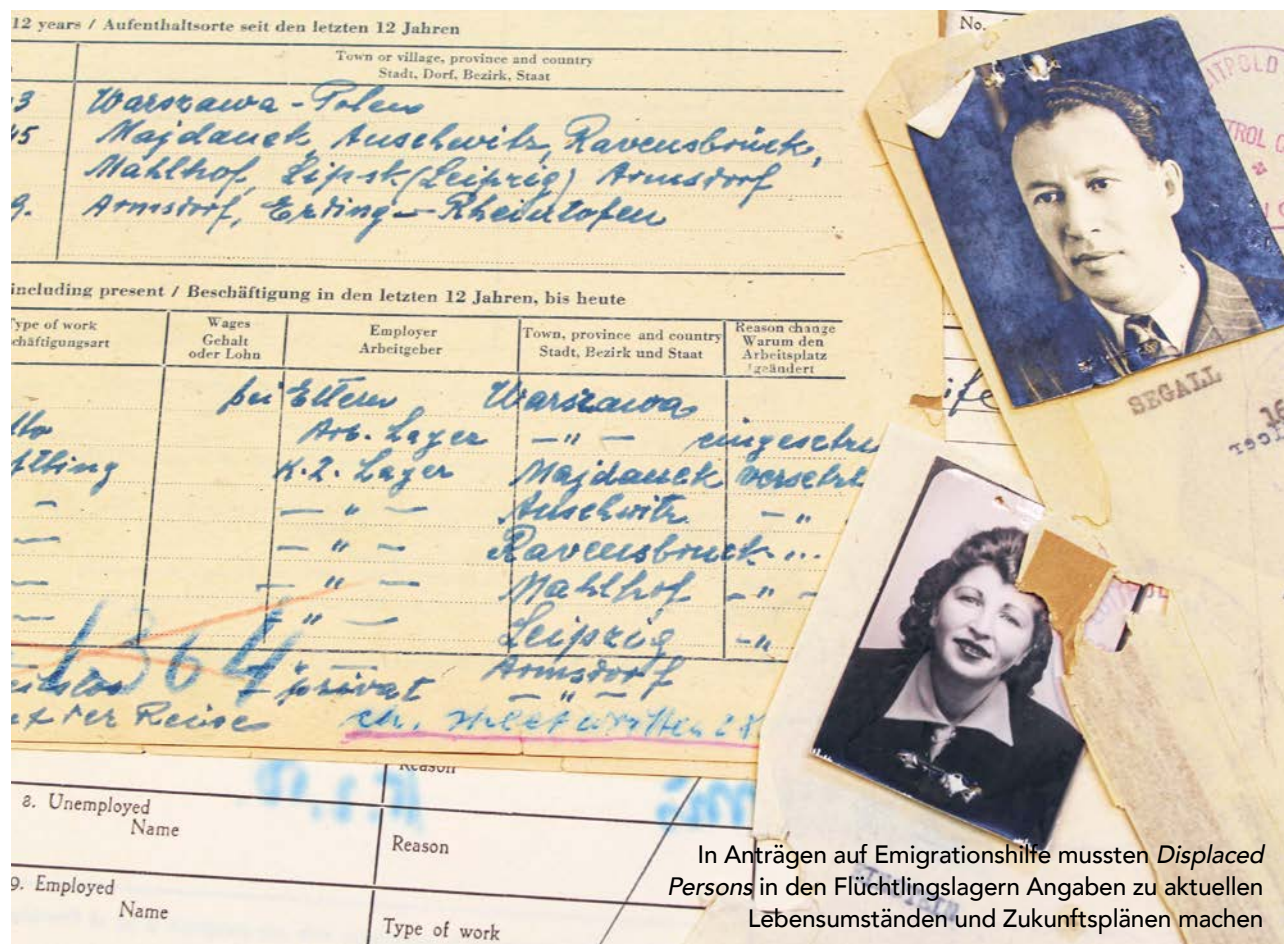 12 years / Aufenthaltsorte seit den letzten 12 Jahren
Town or village, province and country
Stadt, Dorf, Bezirk, Staat
3 Warszawa - Polen
45 Majdanek, Auschwitz, Ravensbrück,
Mahlhof, Lipsk (Leipzig) Armsdorf
9. Armsdorf, Erding -
including present / Beschäftigung in den letzten 12 Jahren, bis heute
Type of work
chäftigungsart
Wages
Gehalt
oder Lohn
Employer
Arbeitgeber
Town, province and country
Stadt, Bezirk und Staat
Reason change
Warum den
Arbeitsplatz
geändert
bei Eltern Warszawa
Arb. Lager - " -
K.Z. Lager Majdanek versetzt
- " - Auschwitz - "
- " - Ravensbruck
- " - Mahlhof - " -
" - Leipzig - "
Armsdorf
1364
privat - " -
der Reise
8. Unemployed
Name
Reason
Reason
9. Employed
Name
Type of work
No.
SEGALL
In Anträgen auf Emigrationshilfe mussten Displaced
Persons in den Flüchtlingslagern Angaben zu aktuellen
Lebensumständen und Zukunftsplänen machen